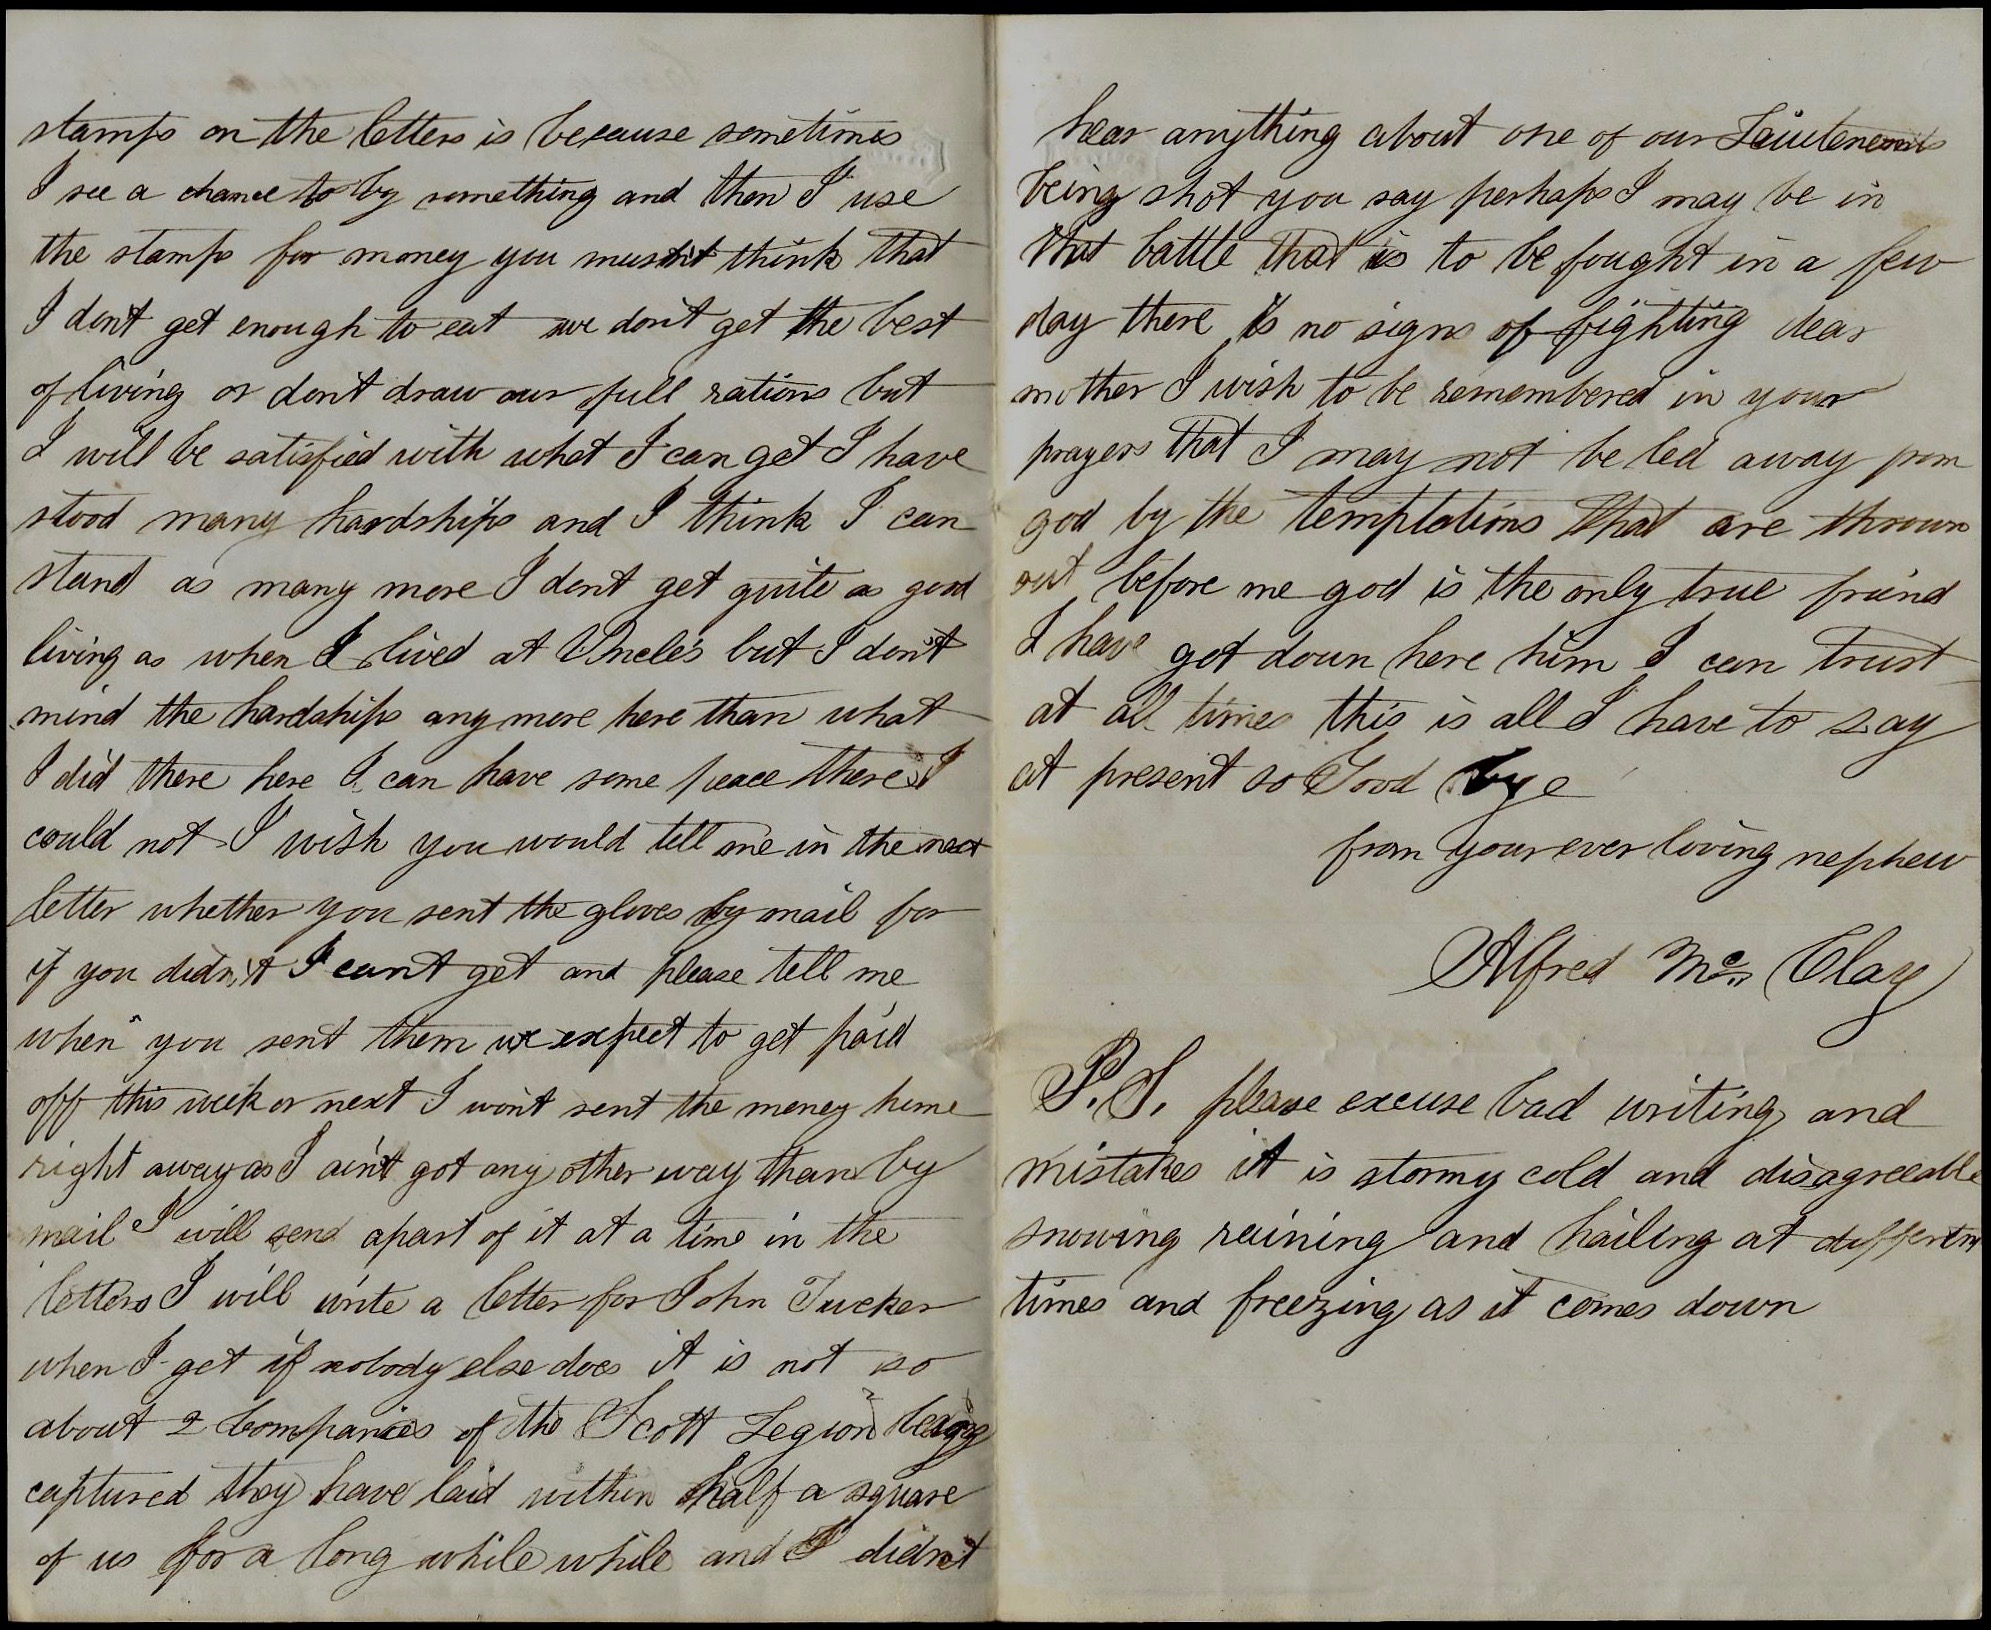 stamps on the letters is because sometimes
I see a chance to by something and then I use
the stamps for money you mustnt think that
I dont get enough to eat we dont get the best
of living or dont draw our full rations but
I will be satisfied with what I can get I have
stood many hardships and I think I can
stand as many more I dont get quite as good
living as when I lived at Uncles but I don't
mind the hardships any more here than what
I did there here I can have some peace there I
could not I wish you would tell me in the next
letter whether you sent the gloves by mail for
if you didn't I cant get and please tell me
when you sent them we expect to get paid
off this week or next I wont sent the money home
right away as I aint got any other way than by
mail I will send apart of it at a time in the
letters I will write a letter for John Tucker
when I get if nobody else does it is not so
about 2 Companies of the Scott Legion being
captured they have laid within half a square
of us for a long while while and I didnt
hear anything about one of our Leiutenents
being shot you say perhaps I may be in
that battle that is to be fought in a few
day there is no signs of fighting dear
mother I wish to be remembered in your
prayers that I may not be led away from
god by the temptations that are thrown
out before me god is the only true friend
I have got down here him I can trust
at all times this is all I have to say
at present so Good bye
from your ever loving nephew
Alfred Mc Clay
P.S. please excuse bad writing and
mistakes it is stormy cold and disagreeable
snowing raining and hailing at different
times and freezing as it comes down